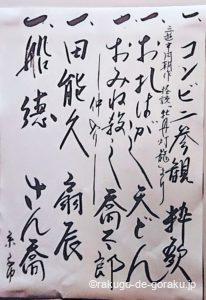 一、コンビニ参観 粋歌
三遊亭円朝作 怪談 牡丹灯籠より
一、お札はがし 天どん
一、おみね殺し 喬太郎
仲入り
一、田能久 扇辰
一、船徳 さん喬
©rakugo-de-goraku.jp